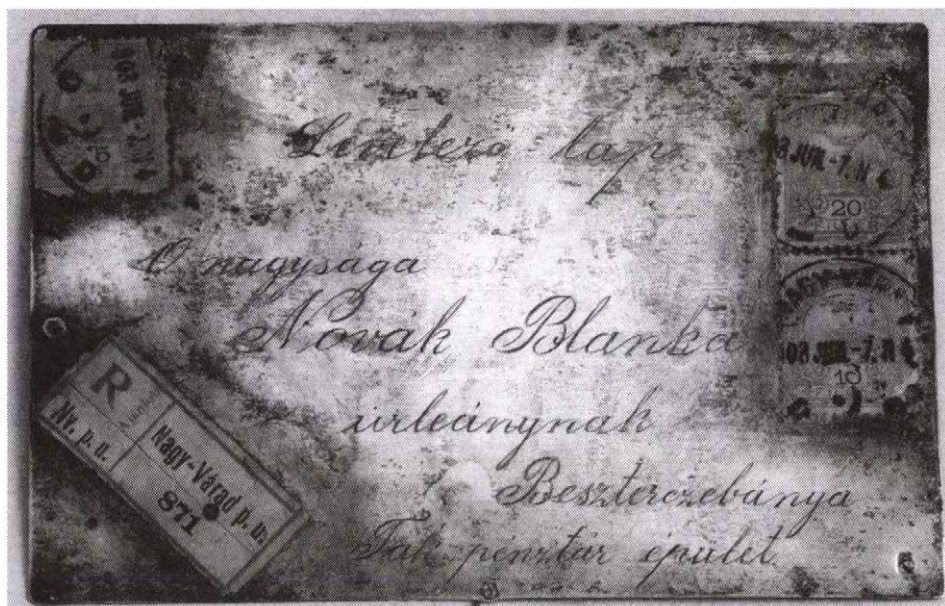 Levelező lap
Ő nagysága
Novák Blanka
úrleánynak
Beszterczebánya
Tak pénztár épület.
R
Nv. p. u.
Nagy-Várad p. u.
871
903 JUN.-7. N 4
20
903 JUN.-7. N 4
10